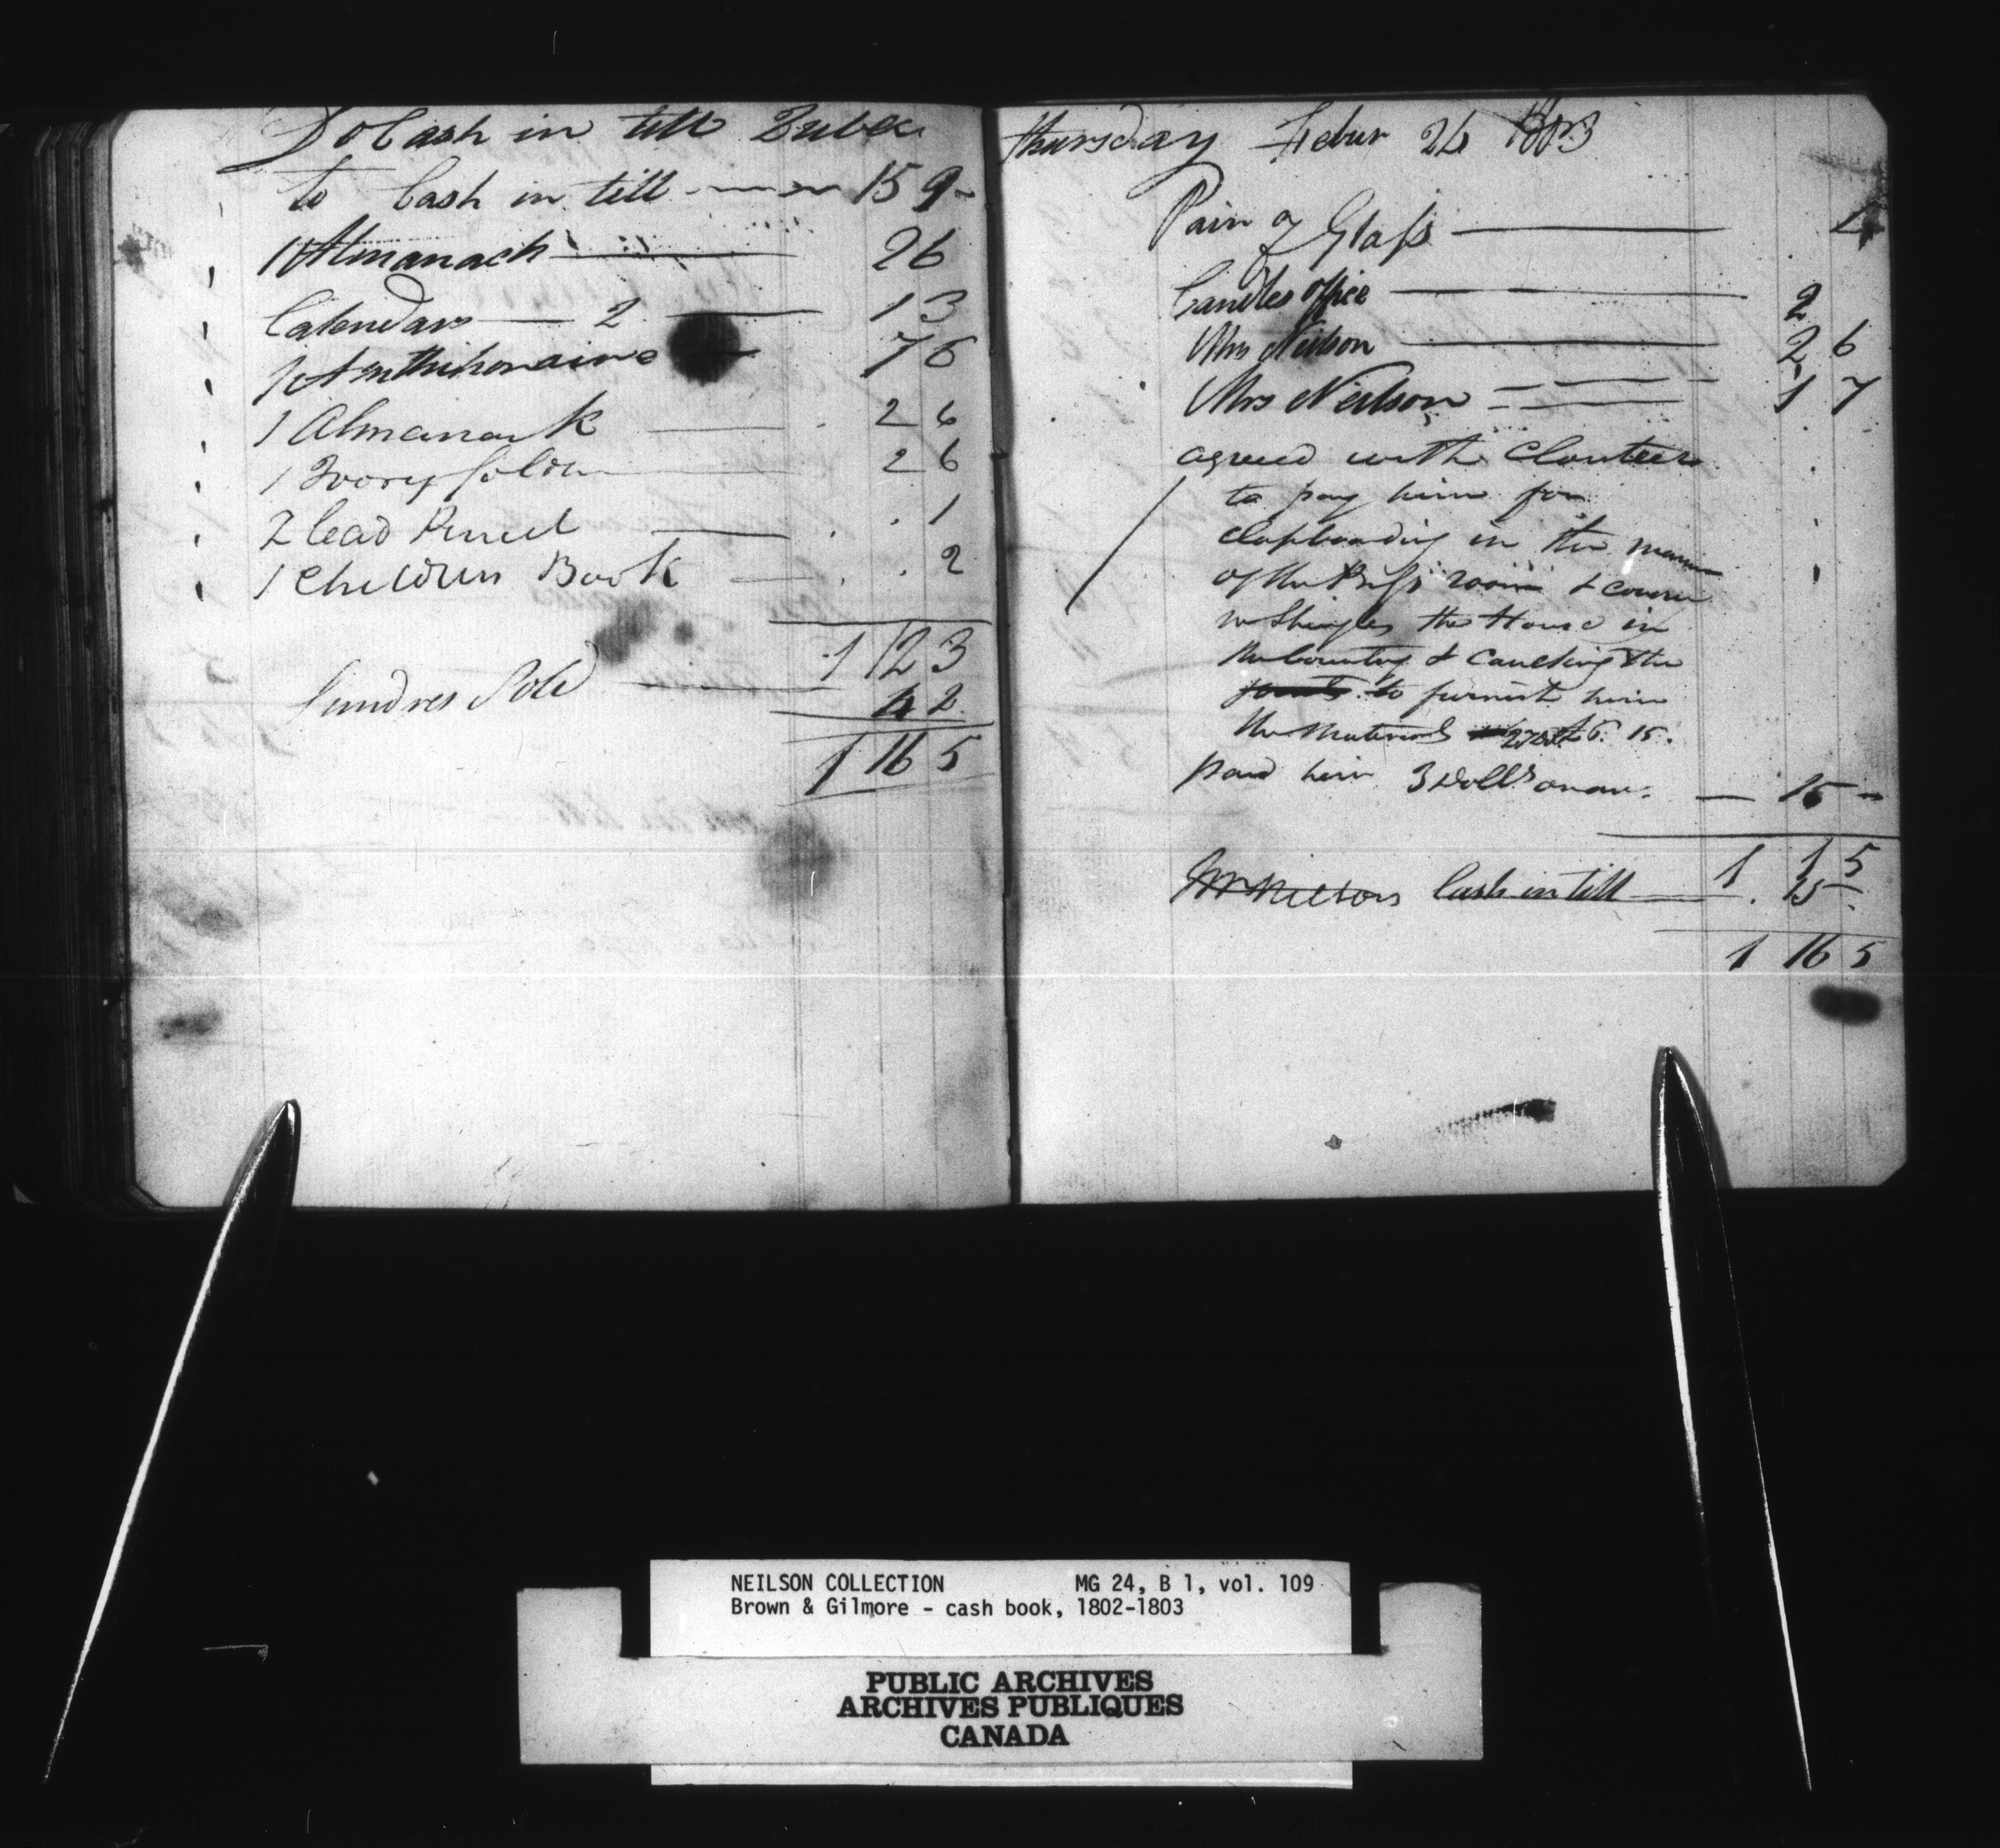 Do Cash in till Quebec
to Cash in till 15 9
1 Almanach 2 6
Calendars 2 1 3
1 Antthihonaire 7 6
1 Almanack 2 6
1 Ivory folder 2 6
2 lead Pencil 1
1 Children Book 2
1 12 3
Sundres Sold 4 2
1 16 5
Thursday Febur 24 1803
Pain of Glass 4
Candles office 2
Mrs Neilson 2 6
Mrs Neilson 1 7
agreed with Cloutier
to pay him for
clapboarding in the
of the Press room & cover
w Shingles the House in
the Country & caulking the
joints to furnish him
the Materials £6. 15.
paid him 3 Dolls 15
1 1 5
Mr Neilson Cash in till 15
1 16 5
NEILSON COLLECTION MG 24, B 1, vol. 109
Brown & Gilmore - cash book, 1802-1803
PUBLIC ARCHIVES
ARCHIVES PUBLIQUES
CANADA